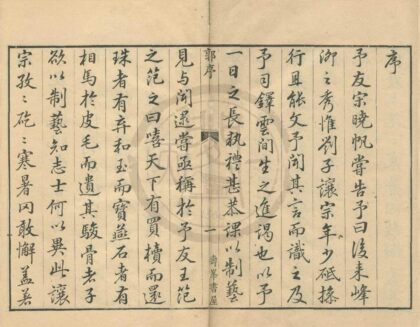 序
予友宋曉帆嘗告予曰後来峰
泖之秀惟劉子讓宗年少砥操
行且能文予聞其言而識之及
予司鐸雲間生之進謁也以予
一日之長執禮甚恭課以制藝
郭序
一
書屋
見与聞還嘗亟稱於予友王范
之范之曰嘻天下有買櫝而還
珠者有弃和玉而寶燕石者有
相馬於皮毛而遺其駿骨老子
欲以制藝知志士何以異此讓
宗孜〻矻〻寒暑罔敢懈蓋若